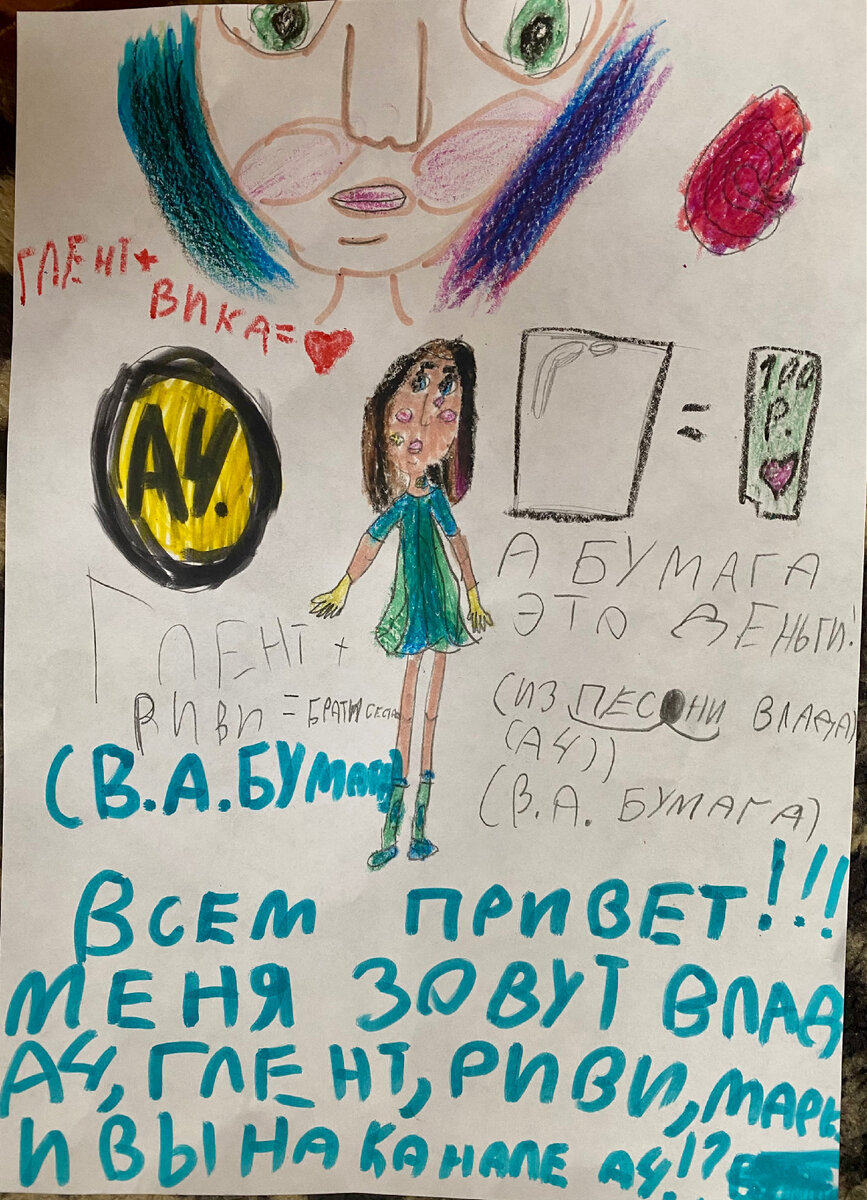 ГЛЕНТ+
ВИКА=
А4.
100
Р.
А БУМАГА
ЭТО ДЕНЬГИ!
(ИЗ ПЕСОНИ ВЛАДА)
(А4))
(В.А. БУМАГА)
ГЛЕНТ +
РИВИ =
(В.А.БУМАГА)
ВСЕМ ПРИВЕТ!!!
МЕНЯ ЗОВУТ ВЛАД
А4, ГЛЕНТ, РИВИ,
И ВЫ НА КАНАЛЕ А4!